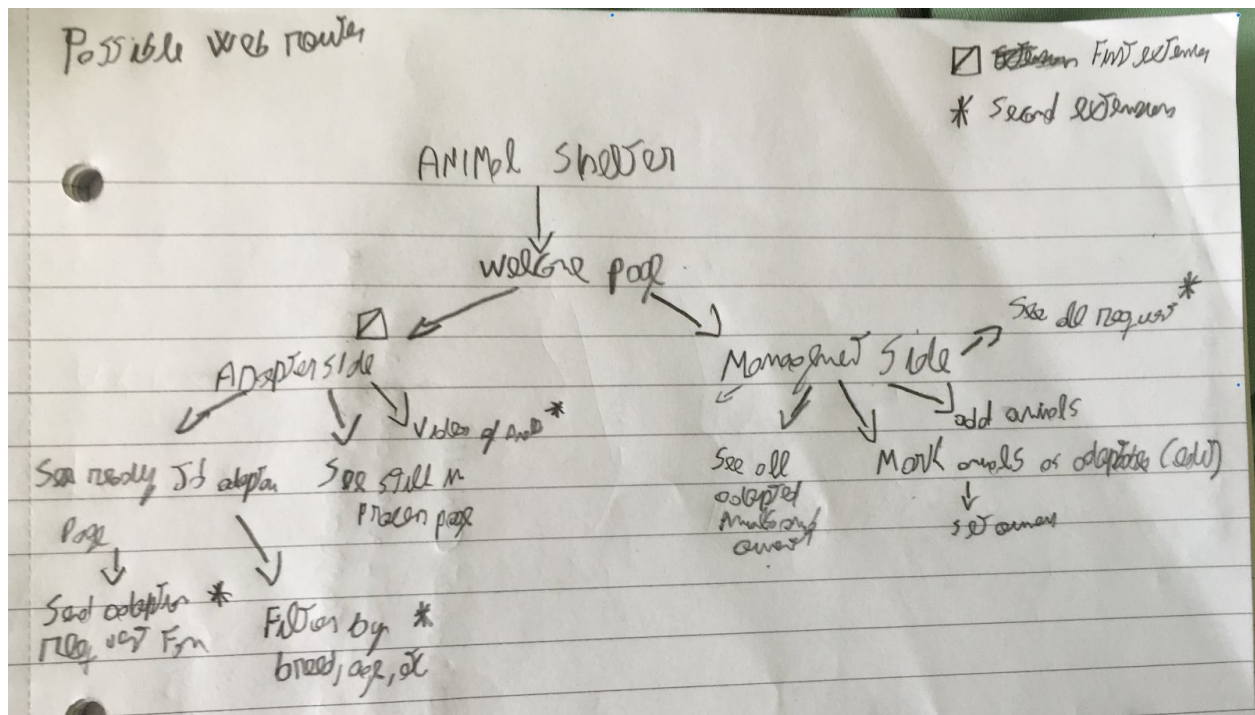 Possible web routes
First extension
* Second extensions
ANIMAL Shelter
Welcome page
See all request *
Adopter side
Managment side
Video of *
add animals
See ready to adoption
page
See still in
process page
See all
adopted
animals and
owners
Mark animals as adopted (edit)
set owners
Send adoption *
request Form
Filter by *
breed, age, etc